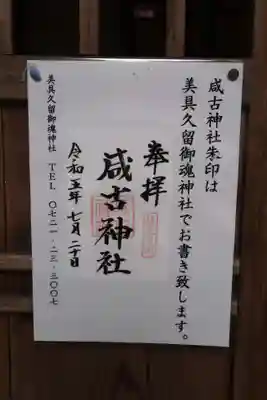 咸古神社朱印は
美具久留御魂神社でお書き致します。
奉拝
咸古神社
令和五年七月二十日
美具久留御魂神社 TEL 〇七二一-二三-三〇〇七